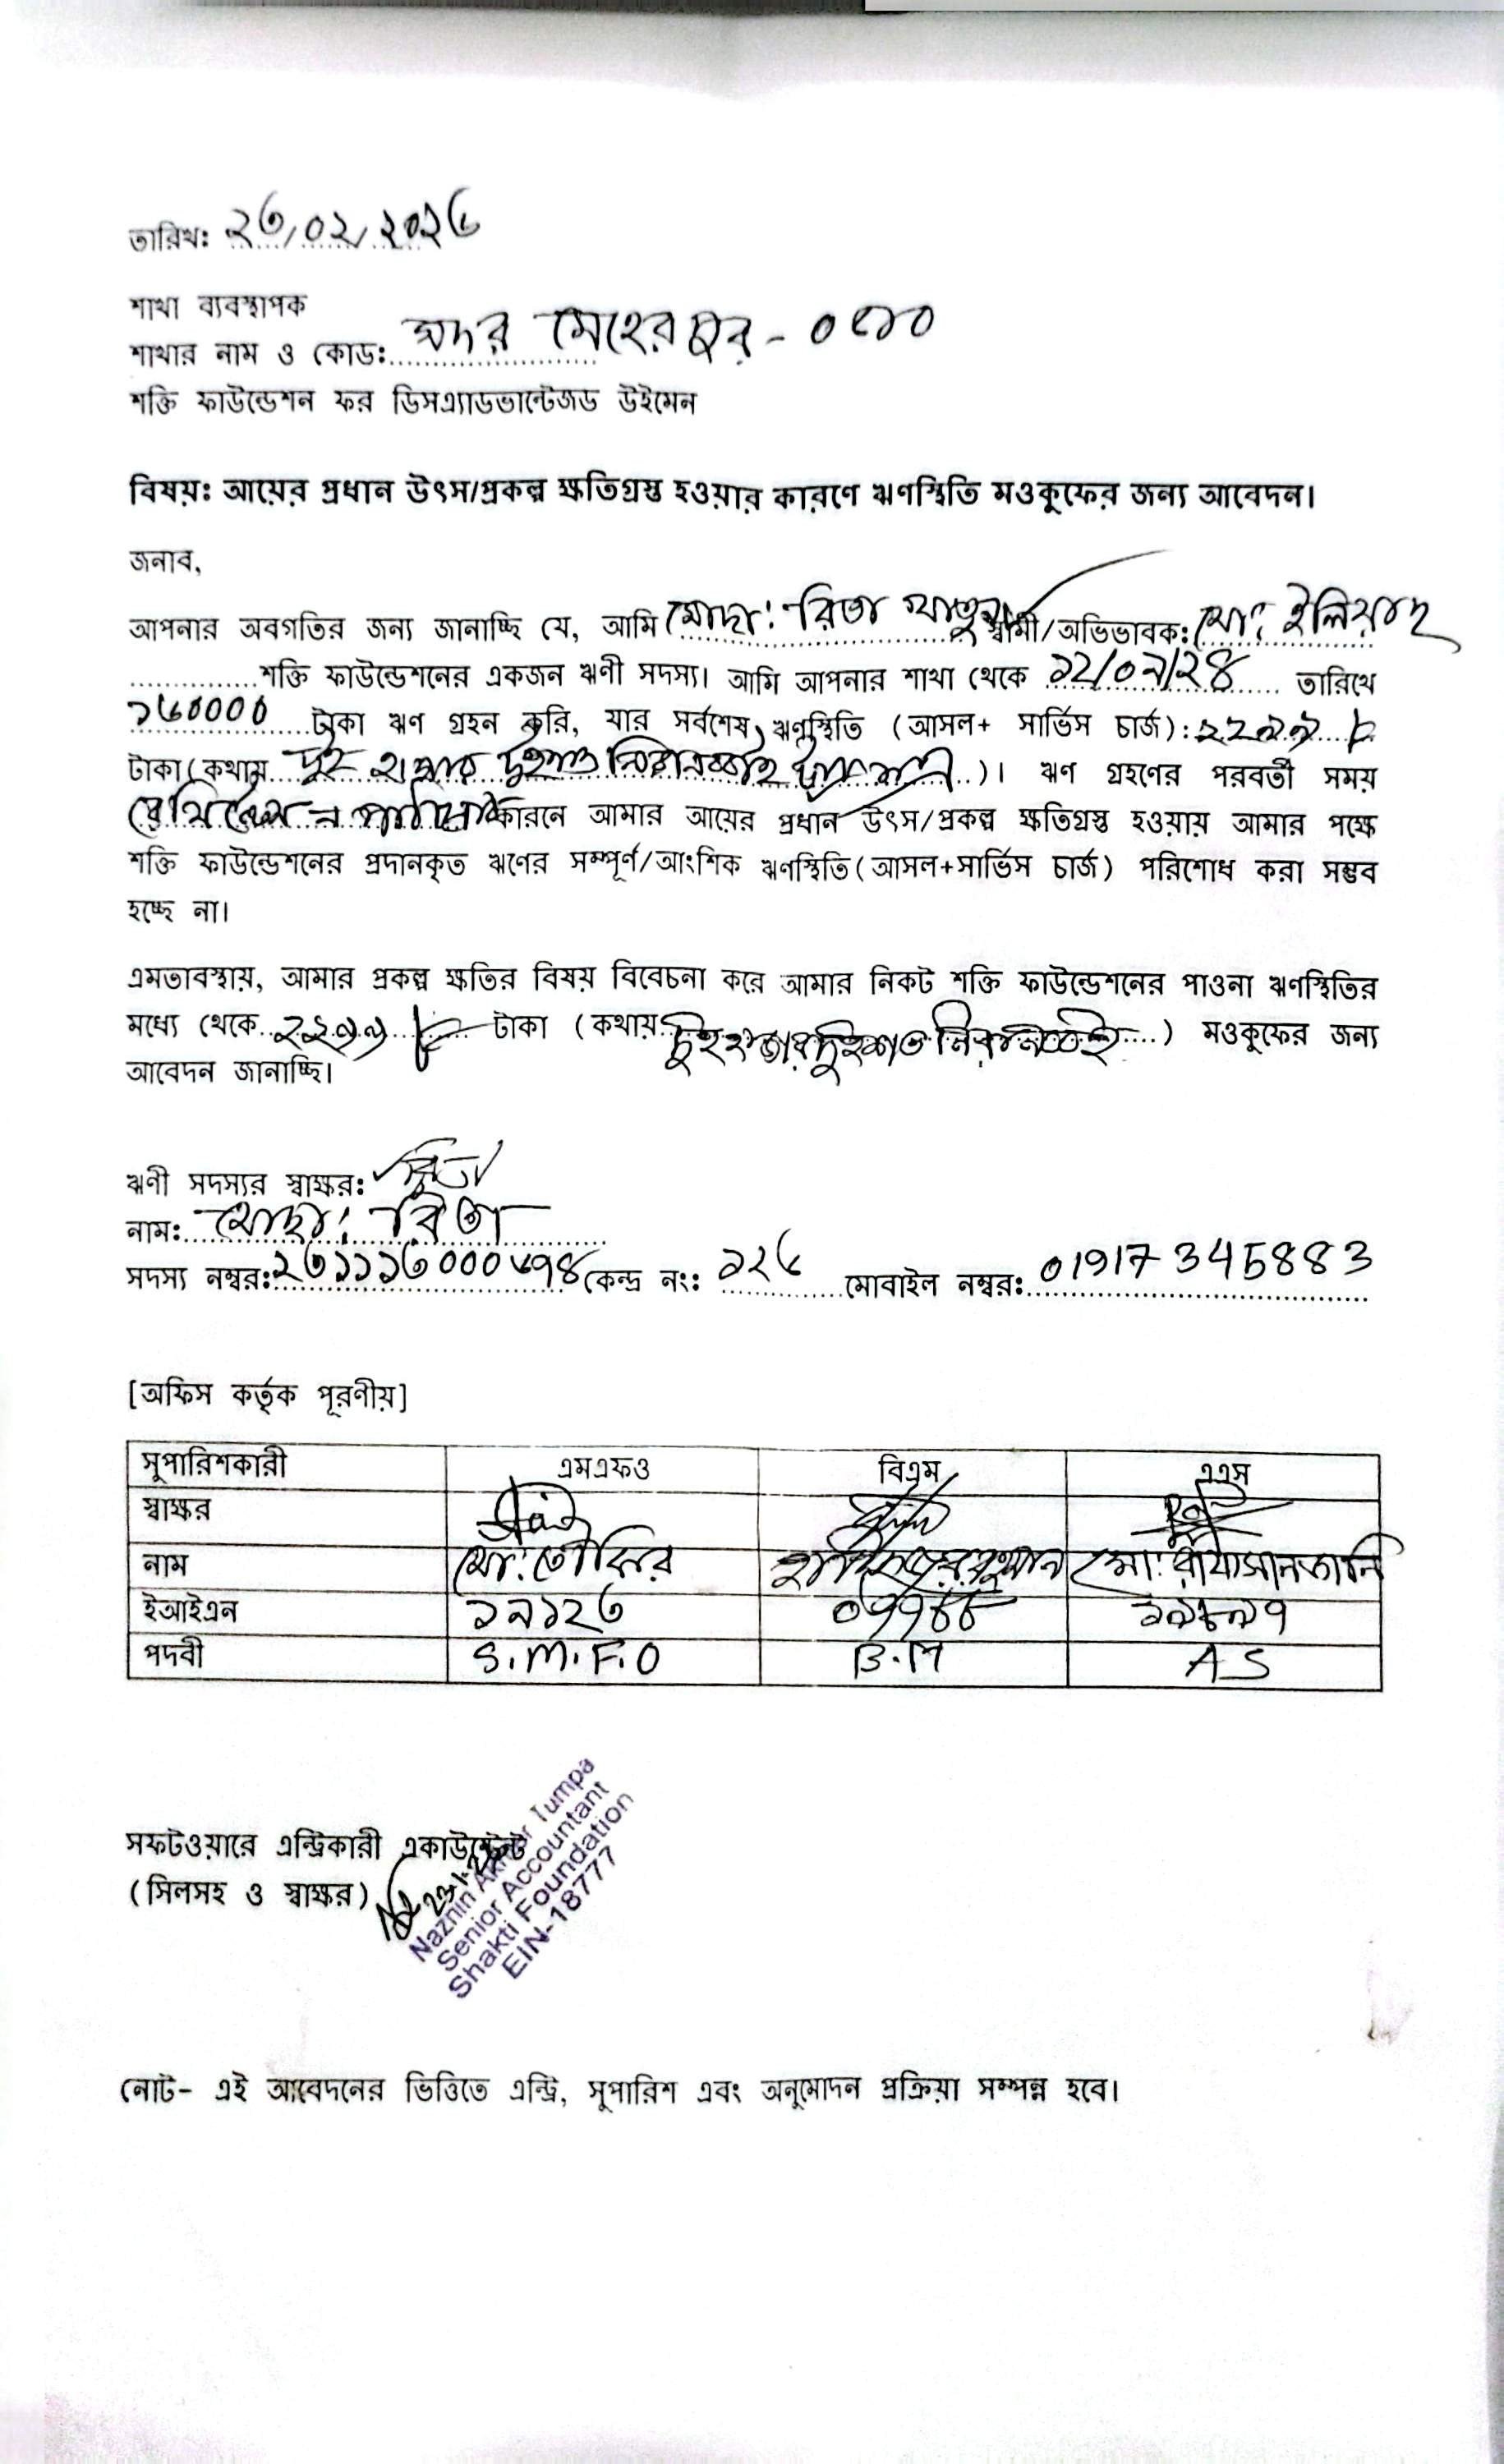 তারিখ: ২৩/০২/২০২৬
শাখা ব্যবস্থাপক
শাখার নাম ও কোড: সদর মেহেরপুর -
শক্তি ফাউন্ডেশন ফর ডিসএ্যাডভান্টেজড উইমেন
বিষয়: আয়ের প্রধান উৎস/প্রকল্প ক্ষতিগ্রস্ত হওয়ার কারণে ঋণস্থিতি মওকুফের জন্য আবেদন।
জনাব,
আপনার অবগতির জন্য জানাচ্ছি যে, আমি মোছা: রিতা খাতুন স্বামী/অভিভাবক: মো: ইলিয়াছ
শক্তি ফাউন্ডেশনের একজন ঋণী সদস্য। আমি আপনার শাখা থেকে ১২/০৯/২৪ তারিখে
১৬০০০০ টাকা ঋণ গ্রহন করি, যার সর্বশেষ ঋণস্থিতি (আসল+ সার্ভিস চার্জ): ২২৯৯
টাকা (কথায় দুই হাজার দুইশত নিরানব্বই টাকা )। ঋণ গ্রহণের পরবর্তী সময়
কারনে আমার আয়ের প্রধান উৎস/প্রকল্প ক্ষতিগ্রস্ত হওয়ায় আমার পক্ষে
শক্তি ফাউন্ডেশনের প্রদানকৃত ঋণের সম্পূর্ণ/আংশিক ঋণস্থিতি (আসল+সার্ভিস চার্জ) পরিশোধ করা সম্ভব
হচ্ছে না।
এমতাবস্থায়, আমার প্রকল্প ক্ষতির বিষয় বিবেচনা করে আমার নিকট শক্তি ফাউন্ডেশনের পাওনা ঋণস্থিতির
মধ্যে থেকে ২২৯৯ টাকা (কথায় দুই হাজার দুইশত নিরানব্বই ) মওকুফের জন্য
আবেদন জানাচ্ছি।
ঋণী সদস্যর স্বাক্ষর: রিতা
নাম: মোছা: রিতা
সদস্য নম্বর: কেন্দ্র নং: ১২৬ মোবাইল নম্বর: 01917345883
[অফিস কর্তৃক পূরণীয়]
সুপারিশকারী এমএফও বিএম এএস
স্বাক্ষর
নাম মো:
ইআইএন ১৯১২৩
পদবী S.M.F.O B.M AS
সফটওয়ারে এন্ট্রিকারী একাউন্টেন্ট
(সিলসহ ও স্বাক্ষর)
Naznin Akhtar Tumpa
Senior Accountant
Shakti Foundation
EIN-18777
নোট- এই আবেদনের ভিত্তিতে এন্ট্রি, সুপারিশ এবং অনুমোদন প্রক্রিয়া সম্পন্ন হবে।